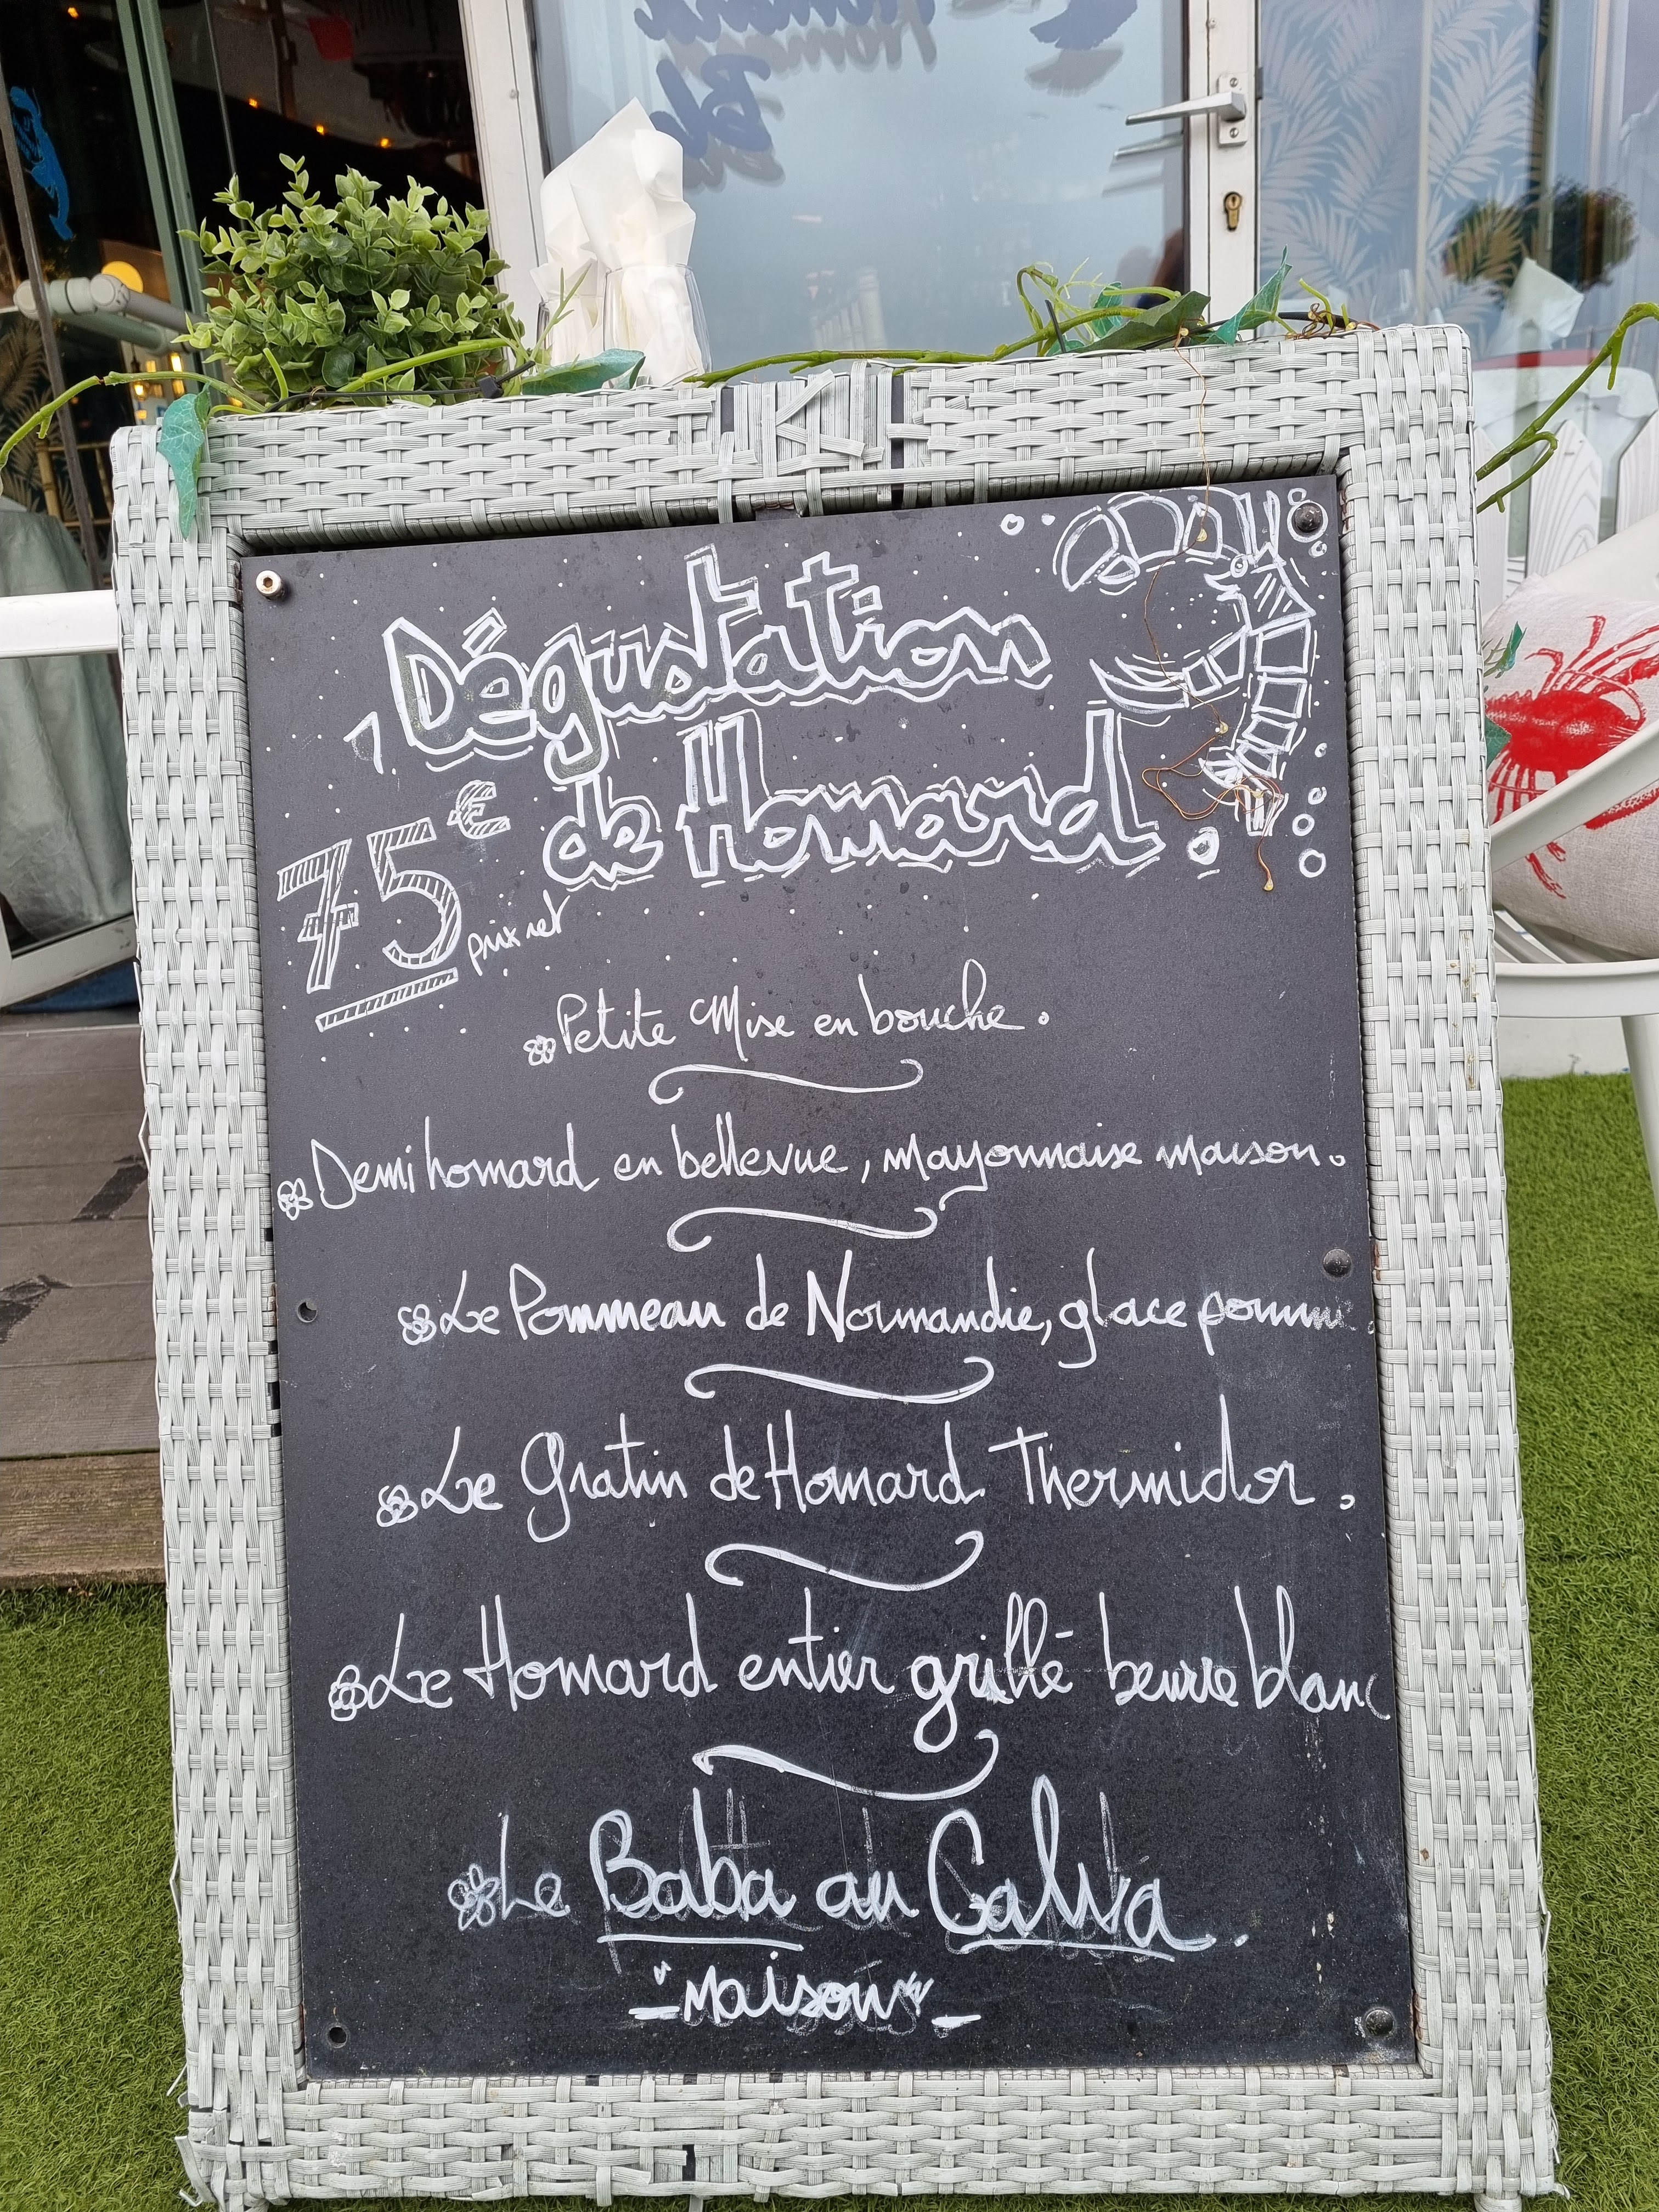 Dégustation
de Homard.
75€
prix net
Petite Mise en bouche.
Demi homard en bellevue, mayonnaise maison.
Le Pommeau de Normandie, glace pomme.
Le Gratin de Homard Thermidor.
Le Homard entier grillé beurre blanc
Le Baba au Calva.
"Maison"